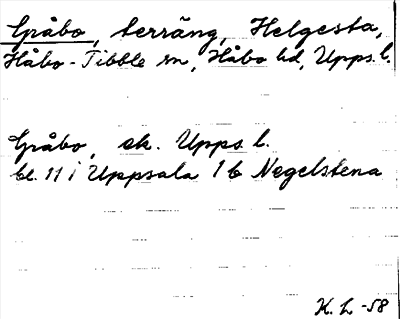 Gråbo, terräng, Helgesta,
Håbo-Tibble sn, Håbo hd, Upps. l.
Gråbo, sk. Upps l.
bl. 11 i Uppsala 1 b Negelstena
K. L -58